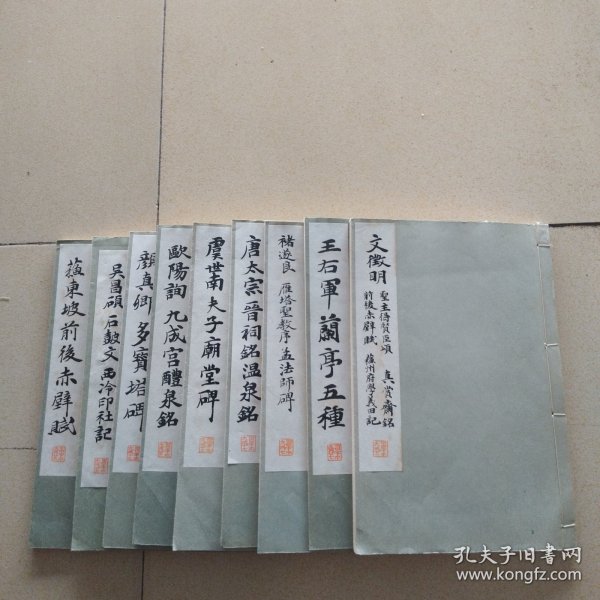 文徵明 聖主得賢臣頌 真賞齋銘
前後赤壁賦 蘊州府學義田記
王右軍 蘭亭五種
褚遂良 雁塔聖教序 孟法師碑
唐太宗 晉祠銘 温泉銘
虞世南 夫子廟堂碑
歐陽詢 九成宮醴泉銘
顏真卿 多寶塔碑
吳昌碩 石鼓文 西泠印社記
蘇東坡前後赤壁賦
孔夫子旧書网
www.kongfz.com